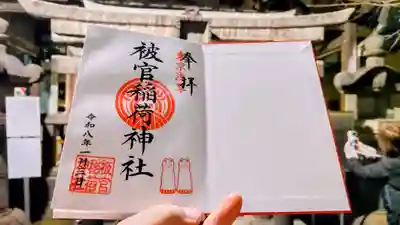 奉拝
東京浅草
被官稲荷神社
令和八年一月三日